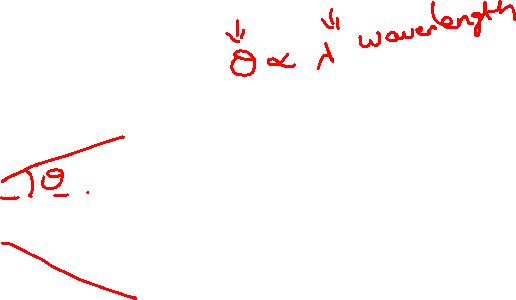 θ ∝ λ wavelength
θ